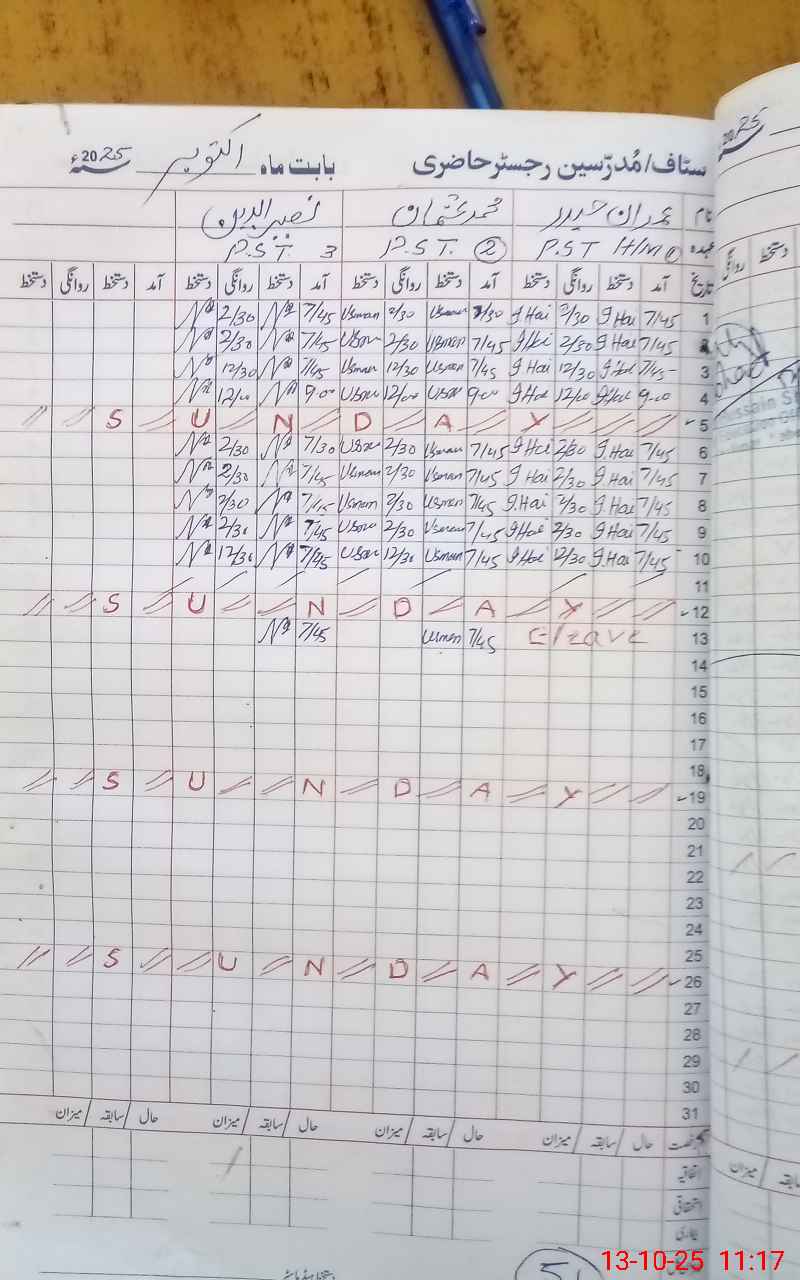 سٹاف/مُدرّسین رجسٹر حاضری بابت ماہ اکتوبر سنہ 2025ء
نام عمران حیدر محمد عثمان نصیرالدین
عہدہ P.S.T H/M 1 P.S.T. 2 P.S.T. 3
تاریخ آمد دستخط روانگی دستخط آمد دستخط روانگی دستخط آمد دستخط روانگی دستخط آمد دستخط روانگی دستخط
1 7/45 g.Hai 2/30 g.Hai 7/30 Usman 2/30 Usman 7/45 2/30
2 7/45 g.Hai 2/30 g.Hai 7/45 Usman 2/30 Usman 7/45 2/30
3 7/45 g.Hai 12/30 g.Hai 7/45 Usman 12/30 Usman 7/45 12/30
4 9-00 g.Hai 12/00 g.Hai 9-00 Usman 12/00 Usman 9-00 12/00
5 S U N D A Y
6 7/45 g.Hai 2/30 g.Hai 7/45 Usman 2/30 Usman 7/30 2/30
7 7/45 g.Hai 2/30 g.Hai 7/45 Usman 2/30 Usman 7/45 2/30
8 7/45 g.Hai 2/30 g.Hai 7/45 Usman 2/30 Usman 7/45 2/30
9 7/45 g.Hai 2/30 g.Hai 7/45 Usman 2/30 Usman 7/45 2/30
10 7/45 g.Hai 12/30 g.Hai 7/45 Usman 12/30 Usman 7/45 12/30
11
12 S U N D A Y
13 7/45 Usman 7/45
14
15
16
17
18
19 S U N D A Y
20
21
22
23
24
25
26 S U N D A Y
27
28
29
30
31
حال سابقہ میزان حال سابقہ میزان حال سابقہ میزان حال سابقہ میزان
اتفاقیہ
استحقاقی
بیماری
دستخط ہیڈ ماسٹر
13-10-25 11:17